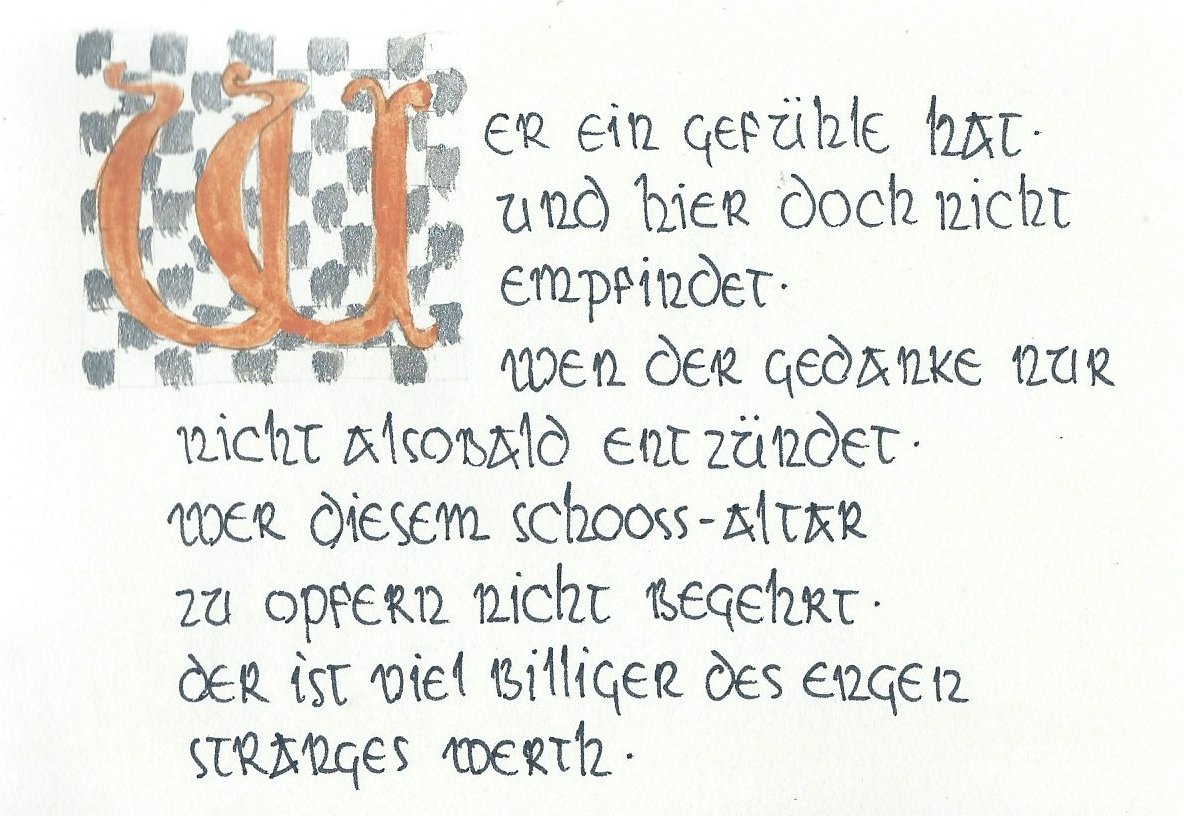 Wer ein gefühle hat·
und hier doch nicht
empfindet·
wen der gedanke nur
nicht alsobald entzündet·
wer diesem schooss-altar
zu opfern nicht begehrt·
der ist viel billiger des engen
stranges werth·